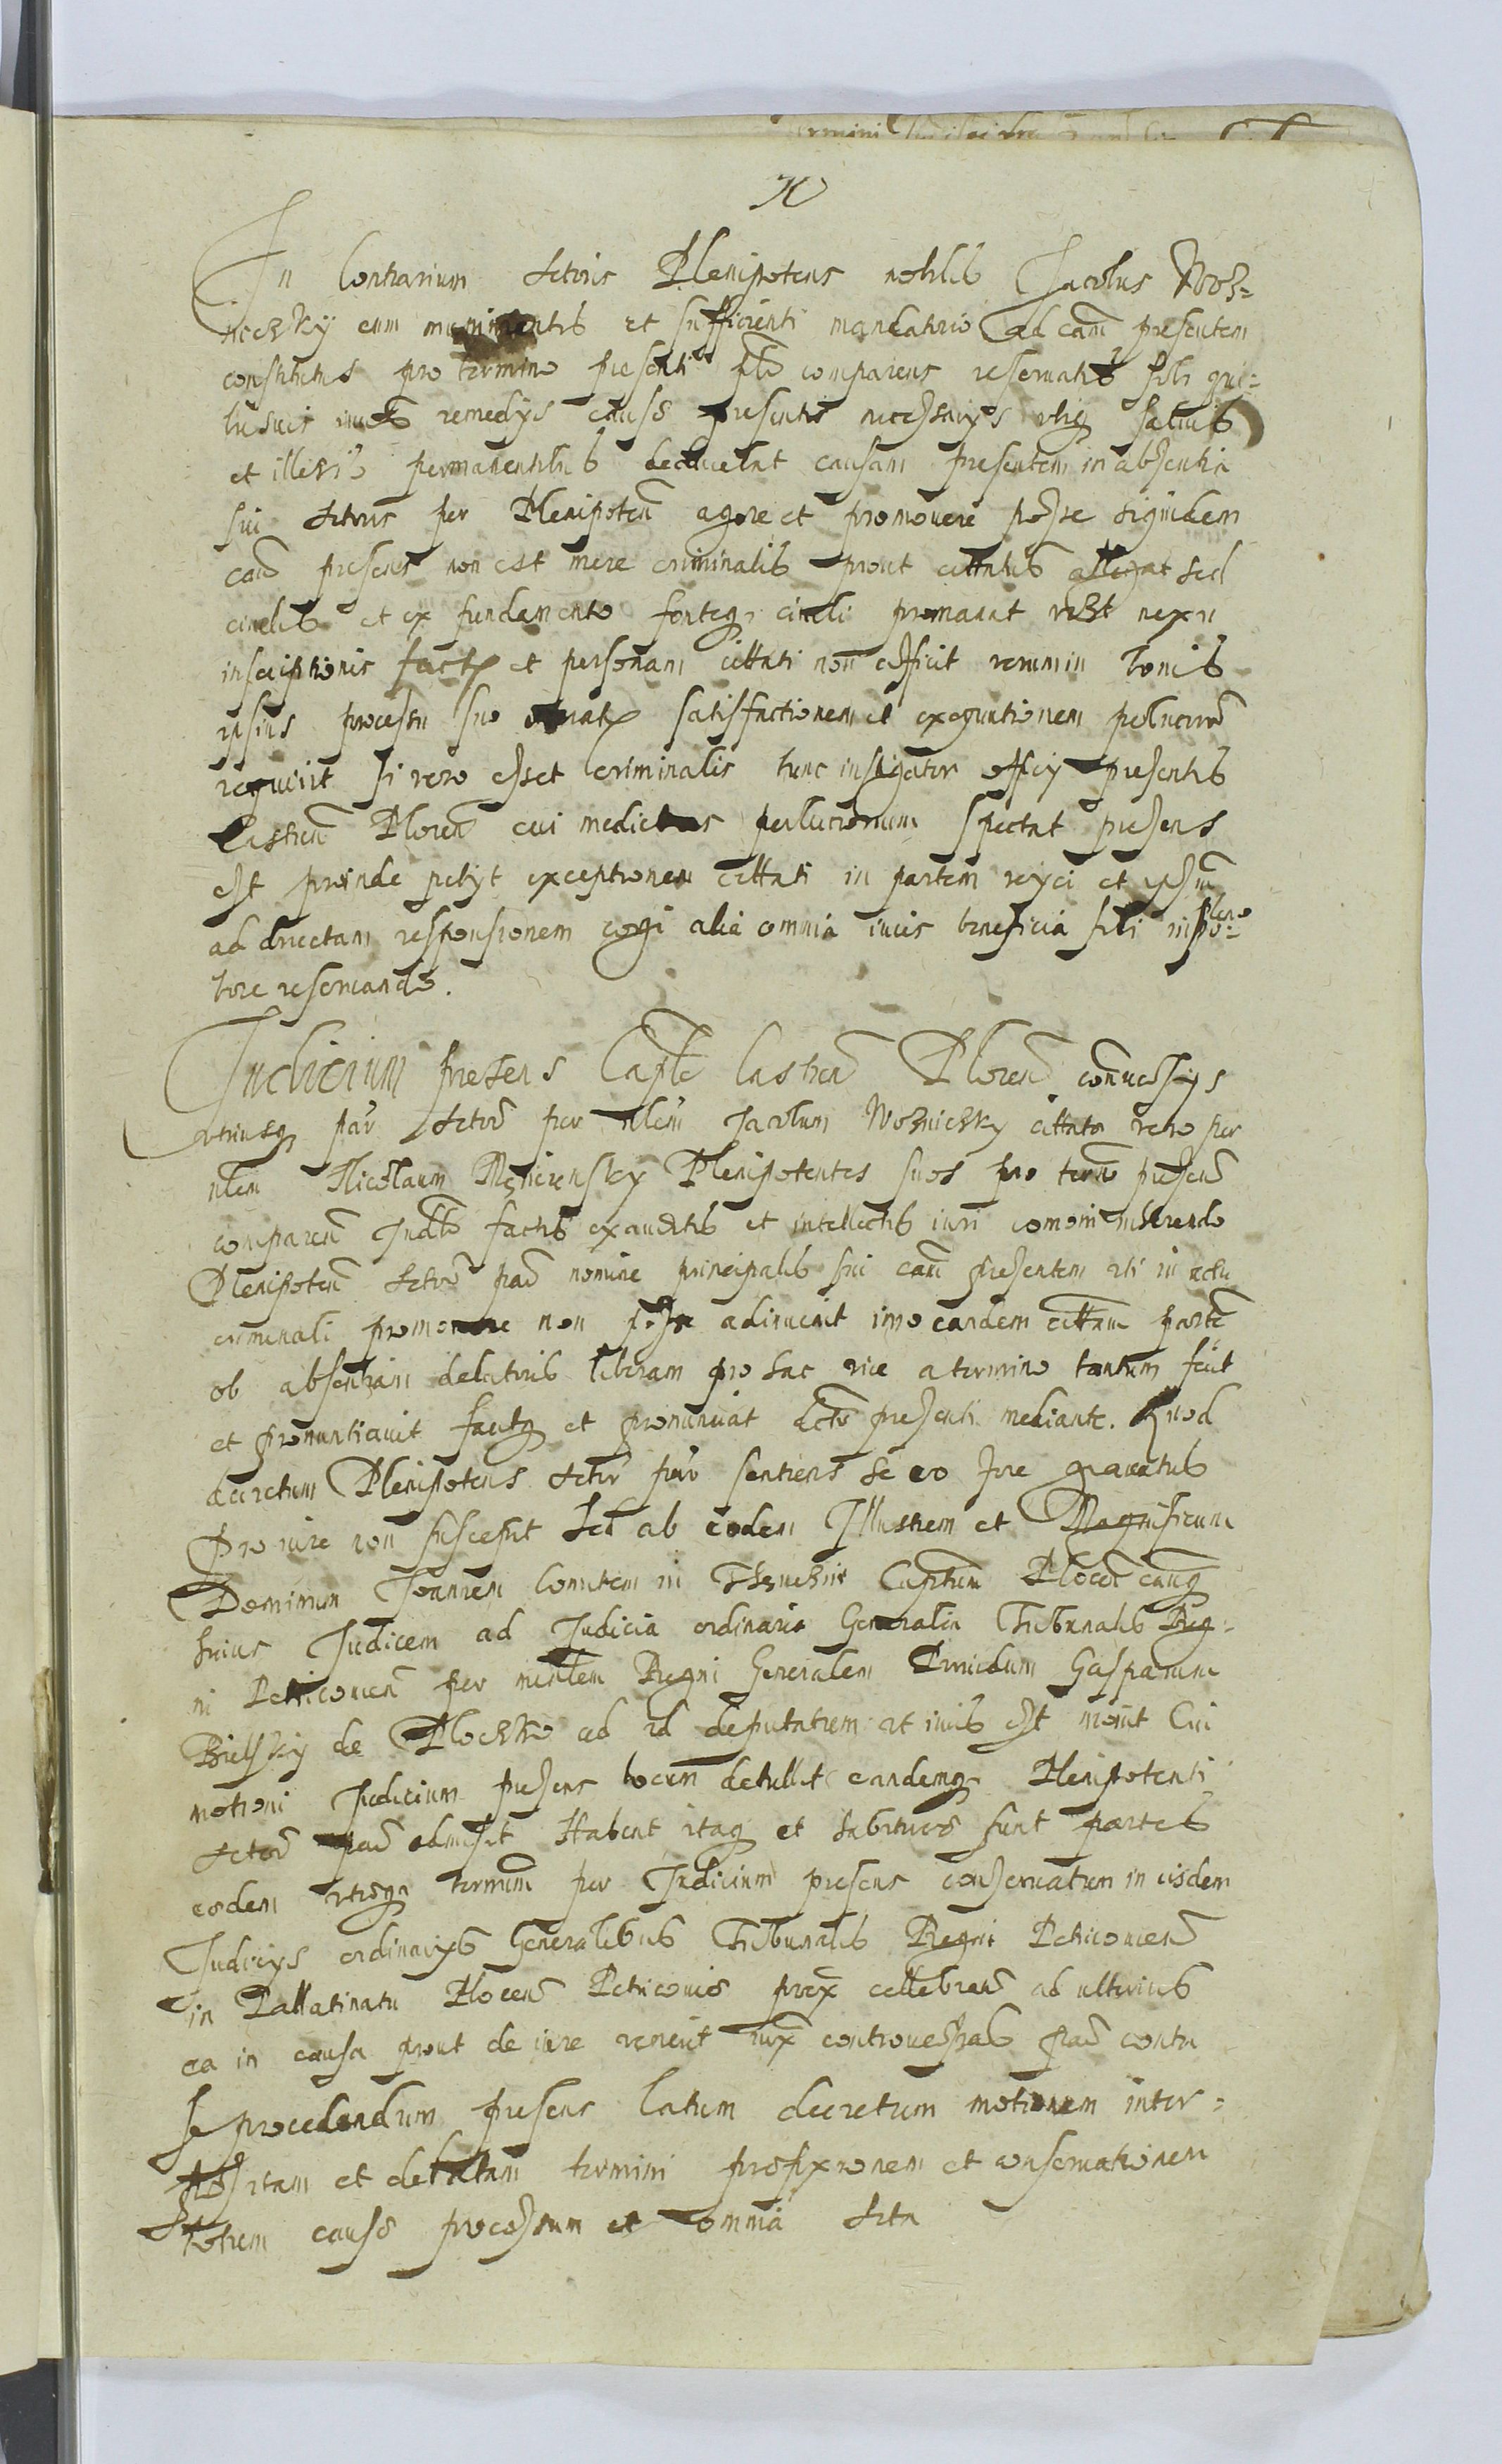 In Contrarium Actoris Plenipotens nobilis Jacobus Woz=
niczky cum munimentis et sufficienti mandatorio ad cam presentem
constitutus pro termino presenti pbto comparens reseruatis sibi qui=
busuis iuris remedys cause presentis necessarys illisq saluis
et illesis permanentibus deducebat causam presentem in absentia
sui Actoris per Plenipoten agere et promouere posse siquidem
cau presens non est mere criminalis prout cittatus allegat sed
ciuilis et ex fundamento fonteq ciuili promanat nexu
inscriptionis facte et personam cittati non efficit verum in bonis
ipsius processu suo satisfactionem et exequutionem
requirit si vero esset criminalis tunc instigator officy presentis
Castren Plocen cui medietas perlucrorum spectat presens
est proinde petyt exceptionem cittati in partem reyci et ipsum
ad directam responsionem cogi alia omnia iuris beneficia sibi in
tore reseruando.
Judicium presens Caple Castren Plocen controuersys
vtriusq par Actor per nlem Jacobum Wozniczky cittata vero per
nlem Nicolaum Plenipotentes suos pro termo presen
comparen Judlr factis exauditis et intellectis iuri comuni inherendo
Plenipoten Actor par nomine principalis sui cam presentem vti in actu
criminali promouere non posse adinuenit imo eandem cittam partem
ob absentiam delatoris liberam pro hac vice a termino tantum fecit
et pronuntiauit facitq et pronunciat decto presenti mediante. Quod
decretum Plenipotens Actor par sentiens se eo fore grauatus
pro iure non suscepit sed ab eodem Illustrem et Magnificum
Dominum Joannem Comitem in Capitum Plocen cauq
huius Judicem ad Judicia ordinaria Generalia Tribunalis Reg=
ni Petricouien per minlem Regni Generalem Prouidum Gasparum
Bielsky de Ploczko ad id deputatum vt iuris est mouit Cui
motioni Judicium presens locum detullit eandemq Plenipotenti
Actor par admisit Habent itaq et habituros sunt partes
eodem vtrasq terminum per Judicium presens conseruatum in eisdem
Judicys ordinarys Generalibus Tribunalis Regni Petricouien
in Pallatinatu Plocen Petricouie prox cellebran ad vlterius
ea in causa prout de iure venerit iux controuersias par contra
se procedendum presens latum decretum motionem inter=
positam et delatam termini prefixionem et conseruationem
totum cause processum et omnia Acta